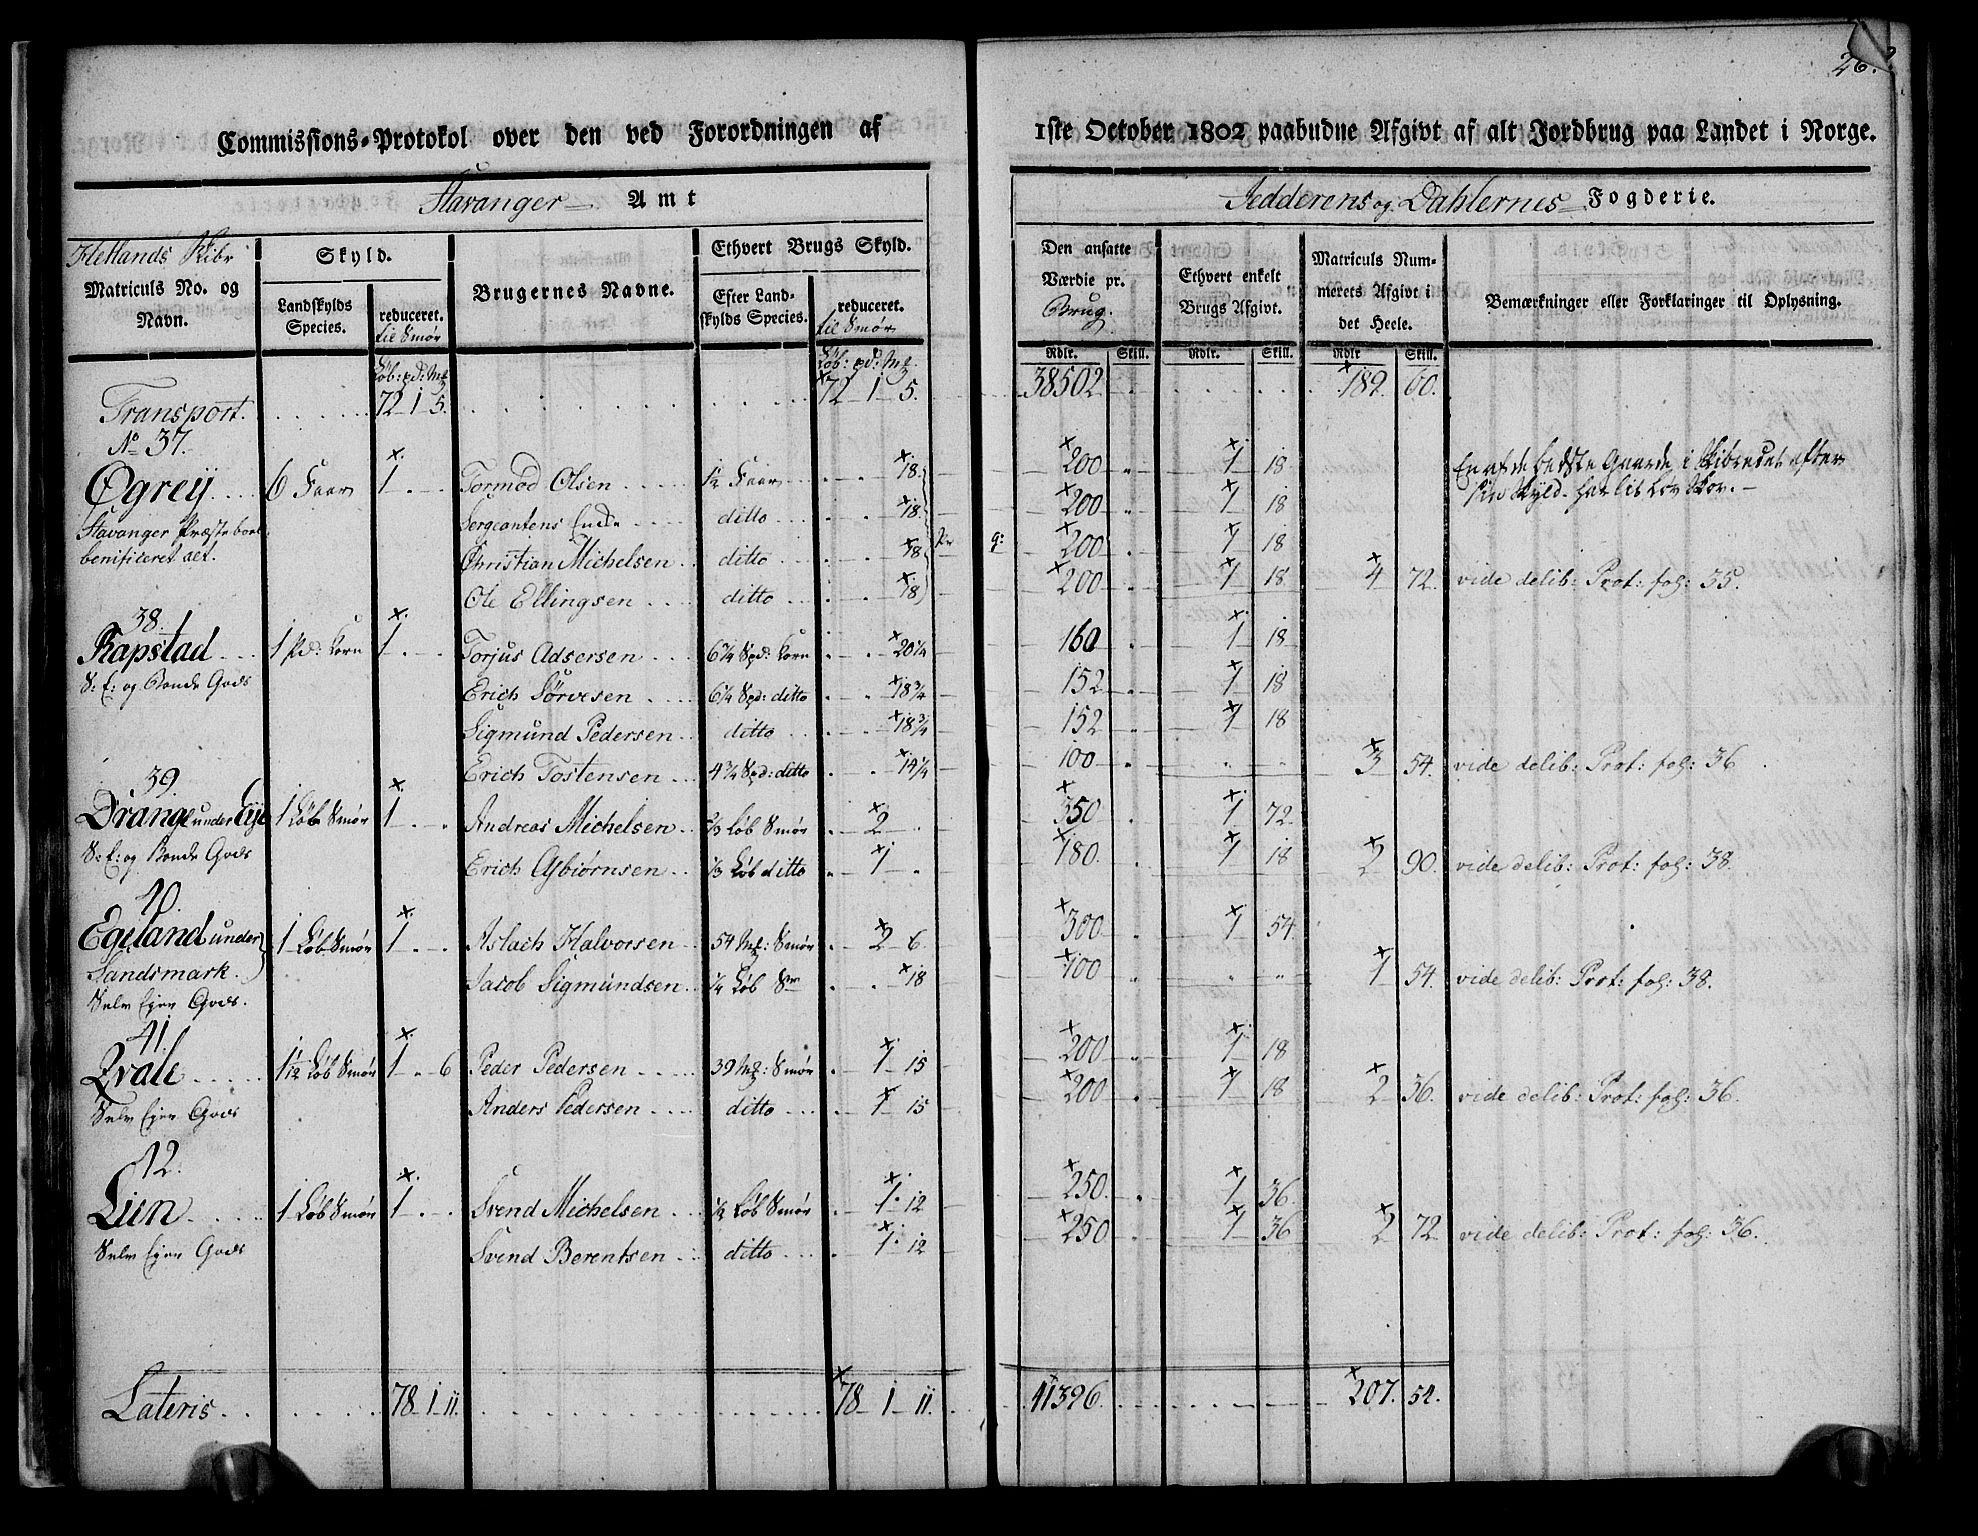 26.
Commissions-Protokol over den ved Forordningen af 1ste October 1802 paabudne Afgivt af alt Jordbrug paa Landet i Norge.
Stavanger Amt Jedderens og Dahlernes Fogderie.
Hetlands Skibr
Matriculs No. og Navn.
Skyld.
Landskylds Species.
reduceret. til Smør
Brugernes Navne.
Ethvert Brugs Skyld.
Efter Landskylds Species.
reduceret. til Smør
Den ansatte Værdie pr. Brug.
Ethvert enkelt Brugs Afgivt.
Matriculs Nummerets Afgivt i det Heele.
Bemærkninger eller Forklaringer til Oplysning.
Løb: pd: Mk Løb: pd: Mk Rdlr. Skill. Rdlr. Skill. Rdlr Skill.
Transport. 72 1 5. 72 1 5. 38502 189. 60.
No 37.
Øgreij 6 Faar 1 Tormod Olsen 1½ Faar 18. 200 1 18 En af de bedste Gaarde i Skibredet efter
Stavanger Præstebord Sergeantens Encke ditto 18. 200 1 18 sin Skyld. har lit Lov Skov.
benificeret alt. Christian Michelsen ditto 18 200 1 18
Ole Ellingsen ditto 18 200 1 18 4 72 vide delib: Prot: fol: 35.
38.
Rapstad 1 Pd: Korn 1 Torjus Adsersen 6¾ Spd: Korn 20¼ 160 1 18
S: E: og Bonde Gods Erich Sörvesen 6¼ Spd: ditto 18¾ 152 1 18
Sigmund Pedersen ditto 18¾ 152 1 18
Erich Tostensen 4¾ Spd: ditto 14¼ 100 3 54. vide delib: Prot: fol: 36
39.
Drange under Eije 1 Løb Smør 1 Andreas Michelsen ⅔ Løb Smør 2 350 1 72.
S: E: og Bonde Gods Erich Asbiørnsen ⅓ Løb ditto 1 180. 1 18 2 90. vide delib: Prot: fol: 38.
40.
Egeland under 1 Løb Smør 1 Aslach Halvorsen 54 Mk: Smør 2 6. 300 1 54.
Sandsmark. Jacob Sigmundsen ¼ Løb Sm 18 100 1 54. vide delib: Prot: fol: 38.
Selv Ejer Gods.
41.
Qvale 1 1/12 Løb Smør 1 6 Peder Pedersen 39 Mk: Smør 1 15 200 1 18
Selv Ejer Gods Anders Pedersen ditto 1 15 200 1 18 2 36. vide delib: Prot: fol: 36.
42.
Lien 1 Løb Smør 1 Svend Michelsen ½ Løb Smør 1 12 250. 1 36.
Selv Ejer Gods Svend Berentsen ditto 1 12 250 1 36 2 72 vide delib: Prot: fol: 36.
Lateris 78 1 11. 78 1 11. 41396. 207. 54.